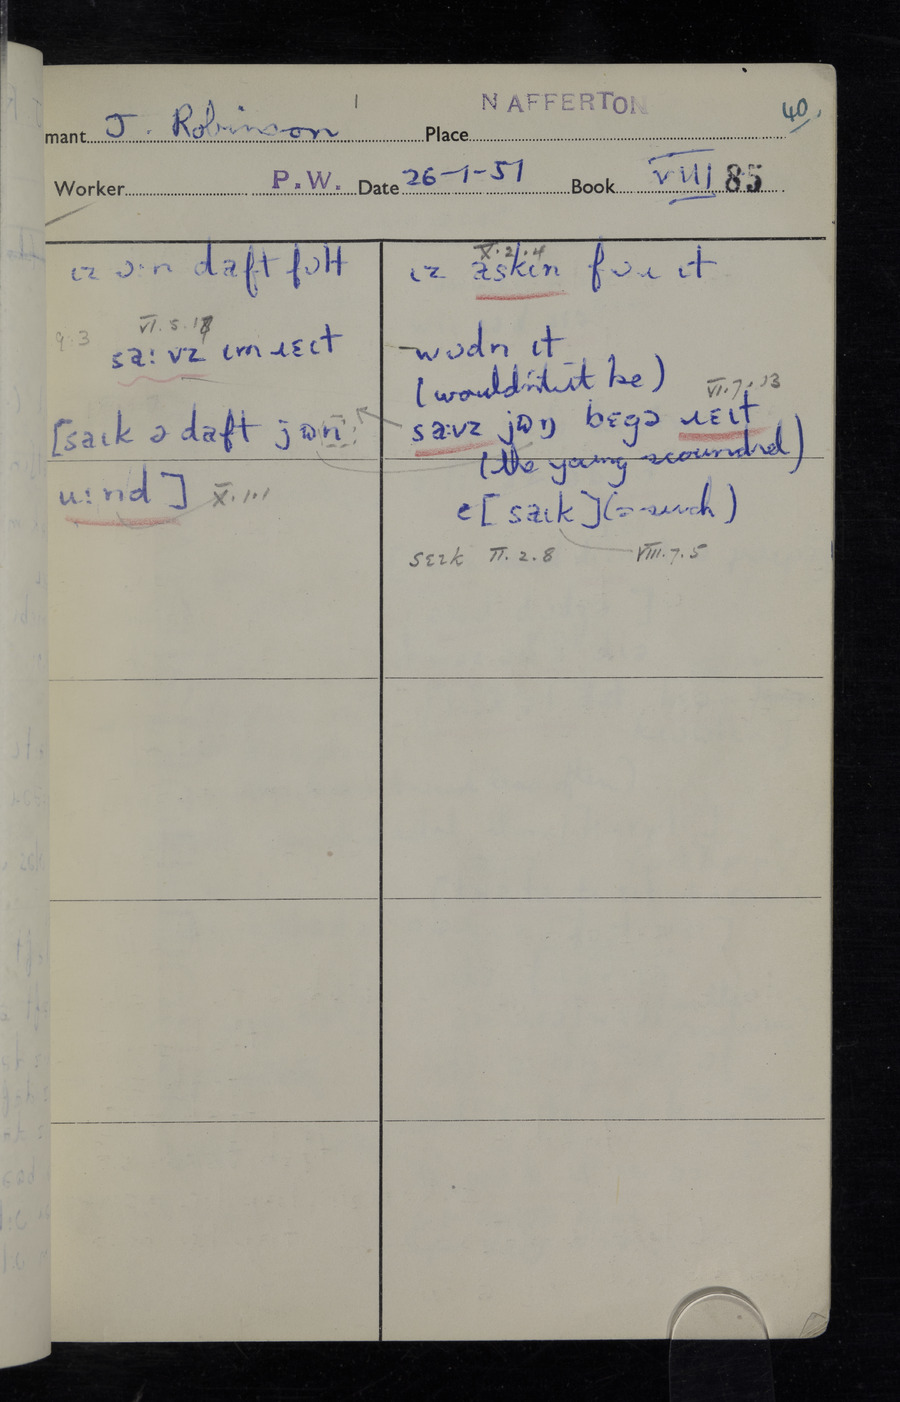 NAFFERTON
40.
mant J. Robinson Place
Worker P.W. Date 26-1-51 Book VIII 85
ɪz daft
VI.5.18
9.3
sa:vz
[saɪk ə daft jɷn
u:nd] X.1.1
X.2.4
ɪz askɪn ɪt
wɷdn ɪt
(wouldn't it be)
VI.7.13
sa:vz jɷŋ bɛgə ɹɛɪt
(the young scoundrel)
[saɪk] (= such)
sɛɪk II.2.8 VIII.7.5